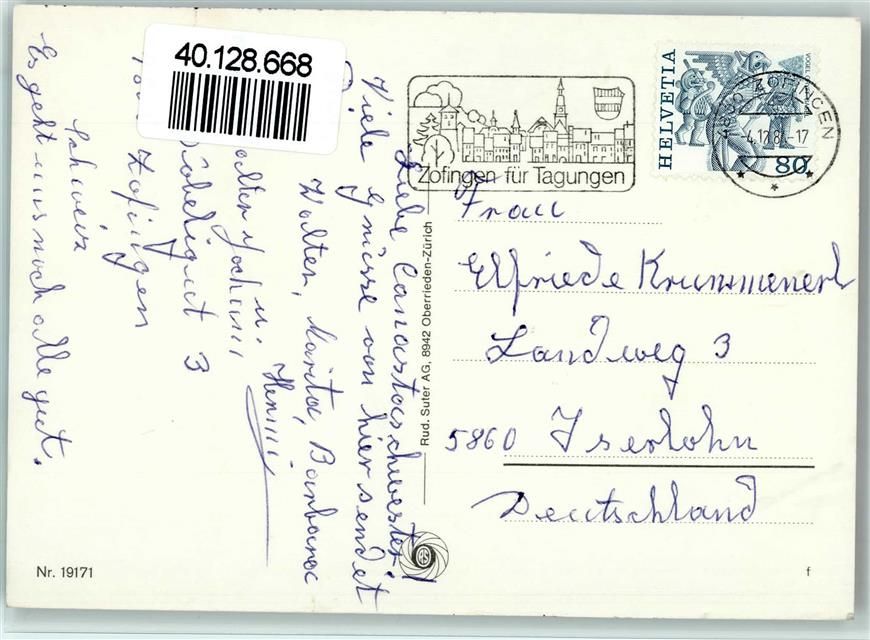 40.128.668
Liebe Canastaschwester!
Viele Grüsse von hier sendet
Walter, Marita, Barbara
u. Henni
Walter Jochim
3
Zofingen
Schweiz
Es geht uns noch alle gut.
Zofingen für Tagungen
HELVETIA
80
4800 ZOFINGEN
-4.12.8 -17
Frau
Elfriede Krummenerl
Landweg 3
5860 Iserlohn
Deutschland
Rud. Suter AG, 8942 Oberrieden-Zürich
RS
Nr. 19171
f